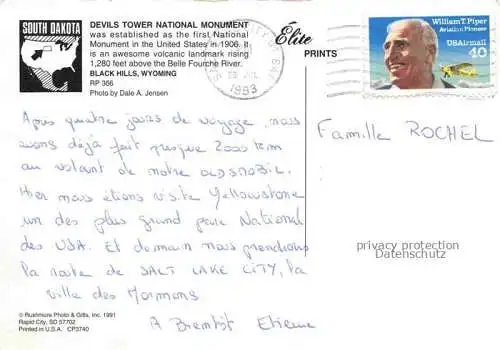 SOUTH DAKOTA
DEVILS TOWER NATIONAL MONUMENT
was established as the first National
Monument in the United States in 1906. It
is an awesome volcanic landmark rising
1,280 feet above the Belle Fourche River.
BLACK HILLS, WYOMING
RP 366
Photo by Dale A. Jensen
Elite
PRINTS
1993
William T. Piper
Aviation Pioneer
USAirmail
40
Apres quatre jours de voyage, nous
avons déjà fait presque 2000 km
au volant de notre OLDSMOBIL.
Hier nous étions visite Yellowstone
un des plus grand parc National
des USA. Et demain nous prendrons
la route de SALT LAKE CITY, la
ville des Mormons.
A Bientôt Etienne
Famille ROCHEL
privacy protection
Datenschutz
© Rushmore Photo & Gifts, Inc. 1991
Rapid City, SD 57702
Printed in U.S.A. CP3740